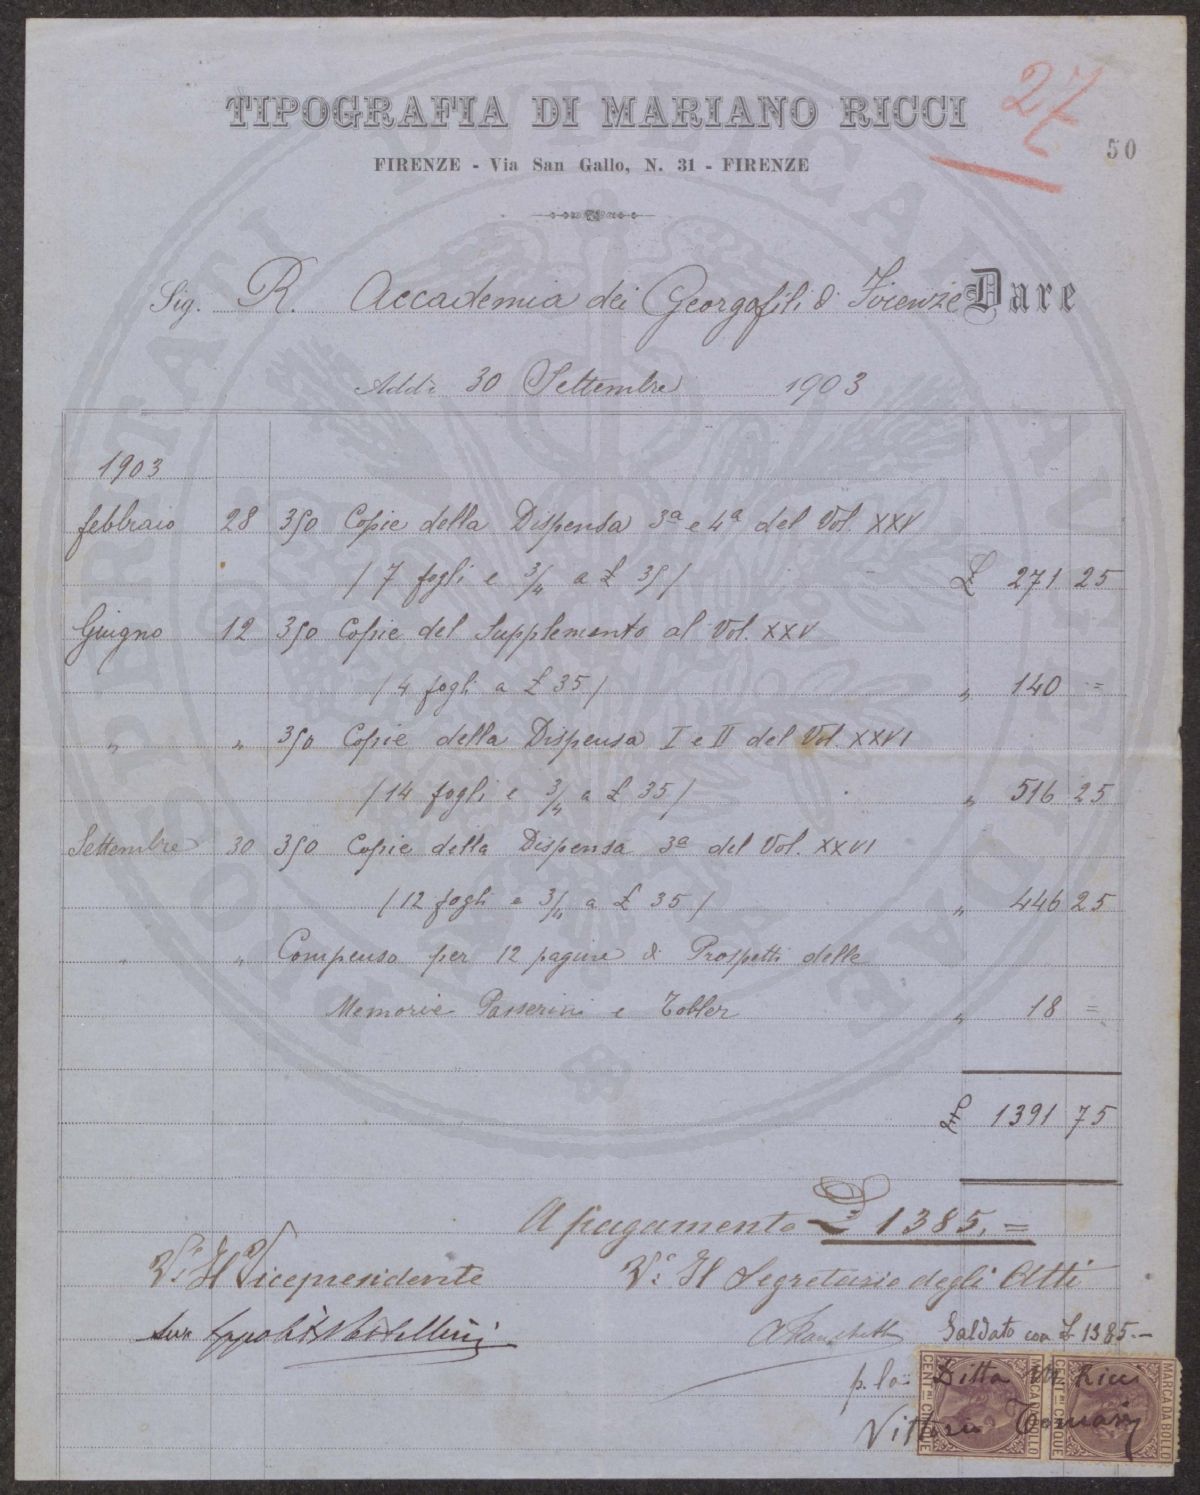 27
50
TIPOGRAFIA DI MARIANO RICCI
FIRENZE - Via San Gallo, N. 31 - FIRENZE
Sig. R. Accademia dei Georgofili di Firenze Dare
Addì 30 Settembre 1903
1903
febbraio 28 350 Copie della Dispensa 3ª e 4ª del Vol. XXV
/ 7 fogli e 3/4 a £ 35 / £ 271 25
Giugno 12 350 Copie del Supplemento al Vol. XXV
/ 4 fogli a £ 35 / „ 140 =
„ „ 350 Copie della Dispensa I e II del Vol. XXVI
/ 14 fogli e 3/4 a £ 35 / „ 516 25
Settembre 30 350 Copie della Dispensa 3ª del Vol. XXVI
/ 12 fogli e 3/4 a £ 35 / „ 446 25
„ „ Compenso per 12 pagine di Prospetti delle
Memorie Passerini e Tobler „ 18 =
£ 1391 75
A pagamento £ 1385. =
V° Il Vicepresidente V° Il Segretario degli Atti
Saldato con £ 1385.—
p. la Ditta M. Ricci
Vittorio
MARCA DA BOLLO
CENT.MI CINQUE
MARCA DA BOLLO
CENT.MI CINQUE
PROSPERITATI PVBLICAE AVGENDAE